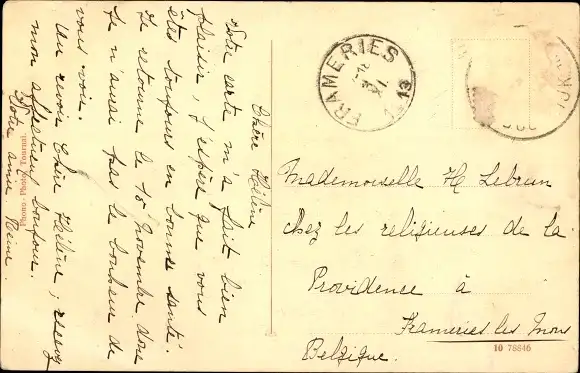 Chère Hélène
Votre carte m'a fait bien
plaisir, j'espère que vous
êtes toujours en bonne santé.
Je retourne le 18 novembre donc
je n'aurai pas le bonheur de
vous voir.
Au revoir Chère Hélène, recevez
mon affectueux bonjour.
Votre amie Reine.
Phono-Photo, Tournai.
FRAMERIES
13
Mademoiselle H Lebrun
Chez les religieuses de la
Providence à
Frameries les Mons
Belgique.
10 78846